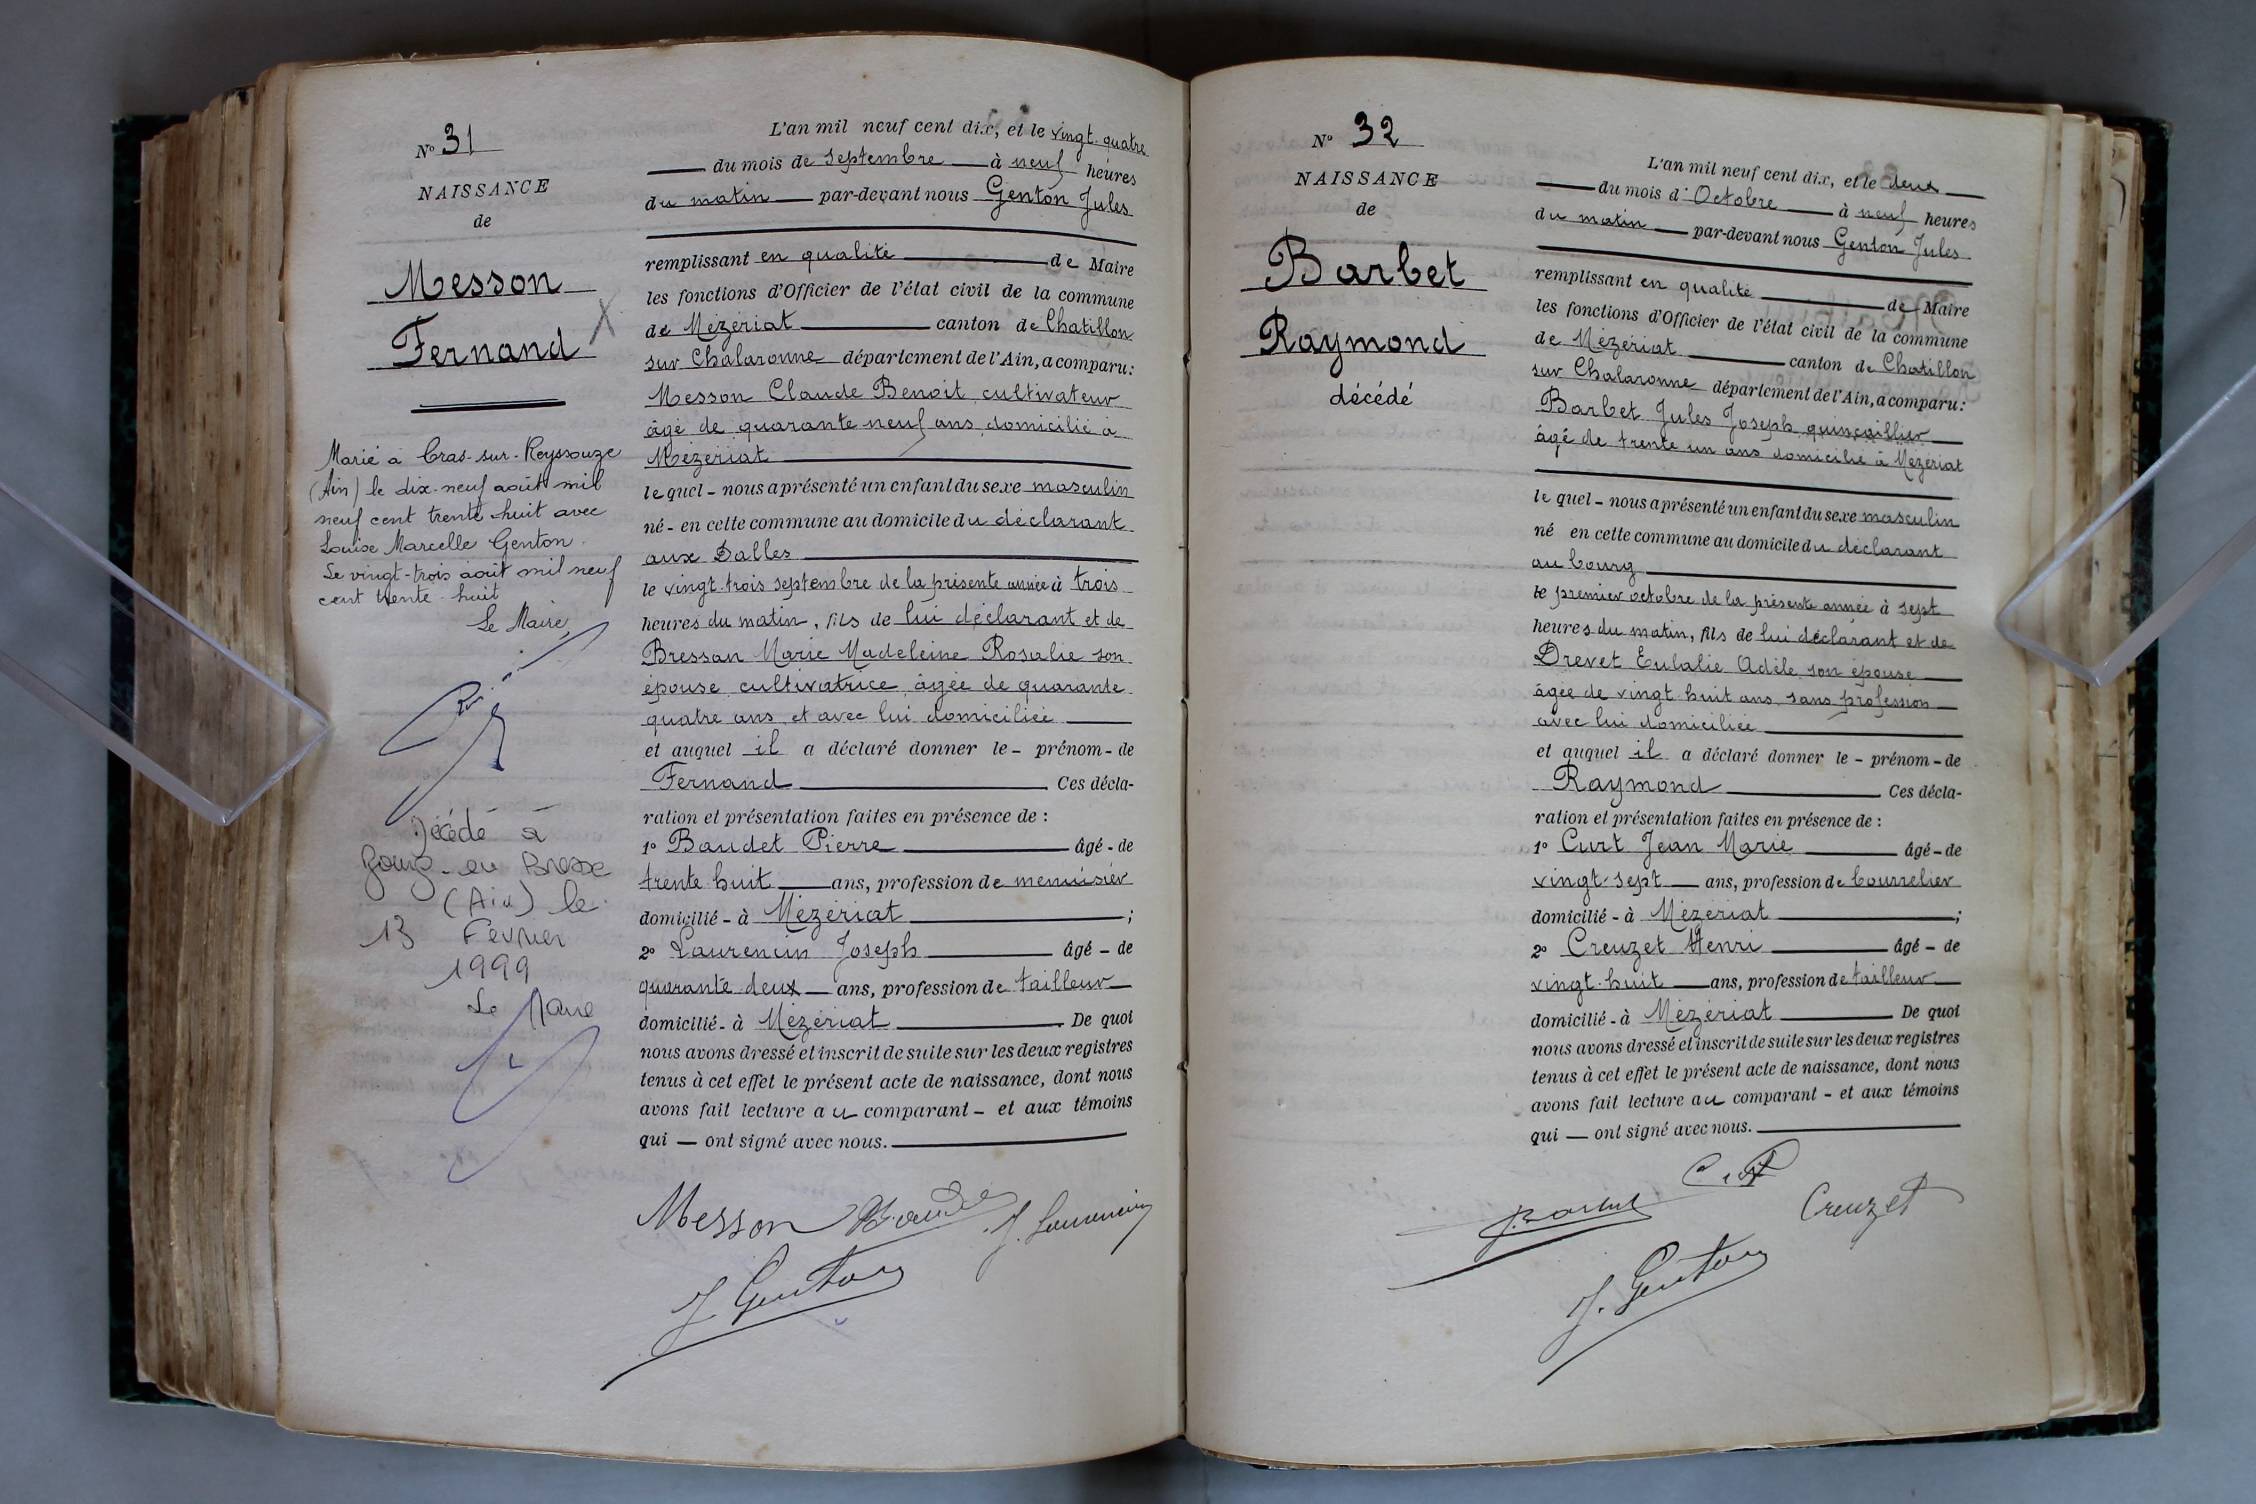 N° 31
NAISSANCE
de
Messon
Fernand
X
Marié à Cras-sur-Reyssouze
(Ain) le dix-neuf août mil
neuf cent trente-huit avec
Louise Marcelle Genton.
Le vingt-trois août mil neuf
cent trente-huit
Le Maire,
Décédé à
Bourg-en Bresse
(Ain) le
13 Février
1999
Le Maire
L'an mil neuf cent dix, et le vingt-quatre
du mois de septembre à neuf heures
du matin par-devant nous Genton Jules
remplissant en qualité de Maire
les fonctions d'Officier de l'état civil de la commune
de Mézériat canton de Chatillon
sur Chalaronne département de l'Ain, a comparu:
Messon Claude Benoit cultivateur
âgé de quarante neuf ans, domicilié à
Mézériat
lequel - nous a présenté un enfant du sexe masculin
né - en cette commune au domicile du déclarant
aux Dalles
le vingt-trois septembre de la présente année à trois
heures du matin, fils de lui déclarant et de
Bressan Marie Madeleine Rosalie son
épouse cultivatrice, âgée de quarante
quatre ans, et avec lui domiciliée
et auquel il a déclaré donner le - prénom - de
Fernand Ces décla-
ration et présentation faites en présence de :
1° Baudet Pierre âgé - de
trente huit ans, profession de menuisier
domicilié - à Mézériat ;
2° Laurencin Joseph âgé - de
quarante deux ans, profession de tailleur
domicilié - à Mézériat . De quoi
nous avons dressé et inscrit de suite sur les deux registres
tenus à cet effet le présent acte de naissance, dont nous
avons fait lecture au comparant - et aux témoins
qui — ont signé avec nous.
Messon Baudet J. Laurencin
J. Genton
N° 32
NAISSANCE
de
Barbet
Raymond
décédé
L'an mil neuf cent dix, et le deux
du mois d'Octobre à neuf heures
du matin par-devant nous Genton Jules
remplissant en qualité de Maire
les fonctions d'Officier de l'état civil de la commune
de Mézériat canton de Chatillon
sur Chalaronne département de l'Ain, a comparu:
Barbet Jules Joseph quincaillier
âgé de trente un ans domicilié à Mézériat
lequel - nous a présenté un enfant du sexe masculin
né en cette commune au domicile du déclarant
au bourg
le premier octobre de la présente année à sept
heures du matin, fils de lui déclarant et de
Drevet Eulalie Adèle, son épouse
âgée de vingt huit ans, sans profession
avec lui domiciliée
et auquel il a déclaré donner le - prénom - de
Raymond Ces décla-
ration et présentation faites en présence de :
1° Curt Jean Marie âgé - de
vingt-sept ans, profession de bourrelier
domicilié - à Mézériat ;
2° Creuzet Henri âgé - de
vingt-huit ans, profession de tailleur
domicilié - à Mézériat De quoi
nous avons dressé et inscrit de suite sur les deux registres
tenus à cet effet le présent acte de naissance, dont nous
avons fait lecture au comparant - et aux témoins
qui — ont signé avec nous.
Curt
Barbet Creuzet
J. Genton